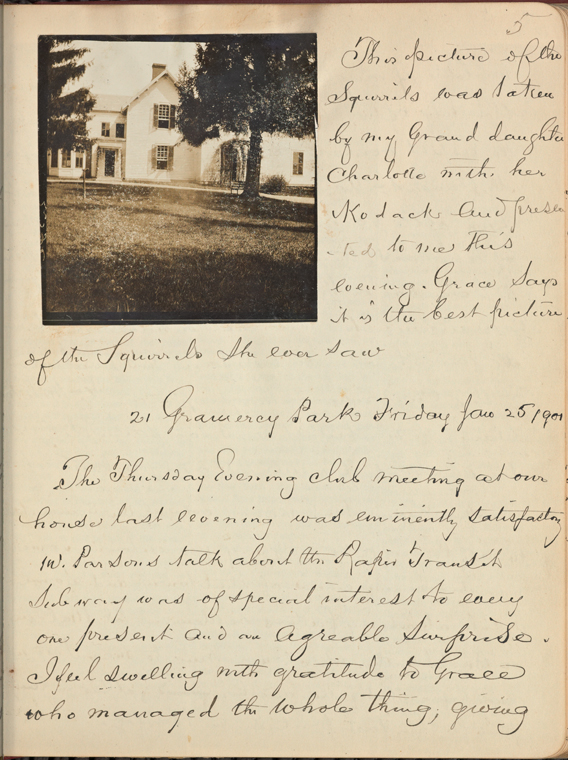 5
This picture of the
Squirrils was taken
by my Grand daughte
Charlotte with her
Kodack and presen
ted to me this
evening. Grace says
it is the best picture
of the Squirrels she ever saw
21 Gramercy Park Friday Jan 25/1901
The Thursday Evening club meeting at our
house last evening was eminently satisfactory
Parsons talk about the Rapid Transit
Subway was of special interest to every
one present and an agreable surprise.
I feel swelling with gratitude to Grace
who managed the whole thing, giving